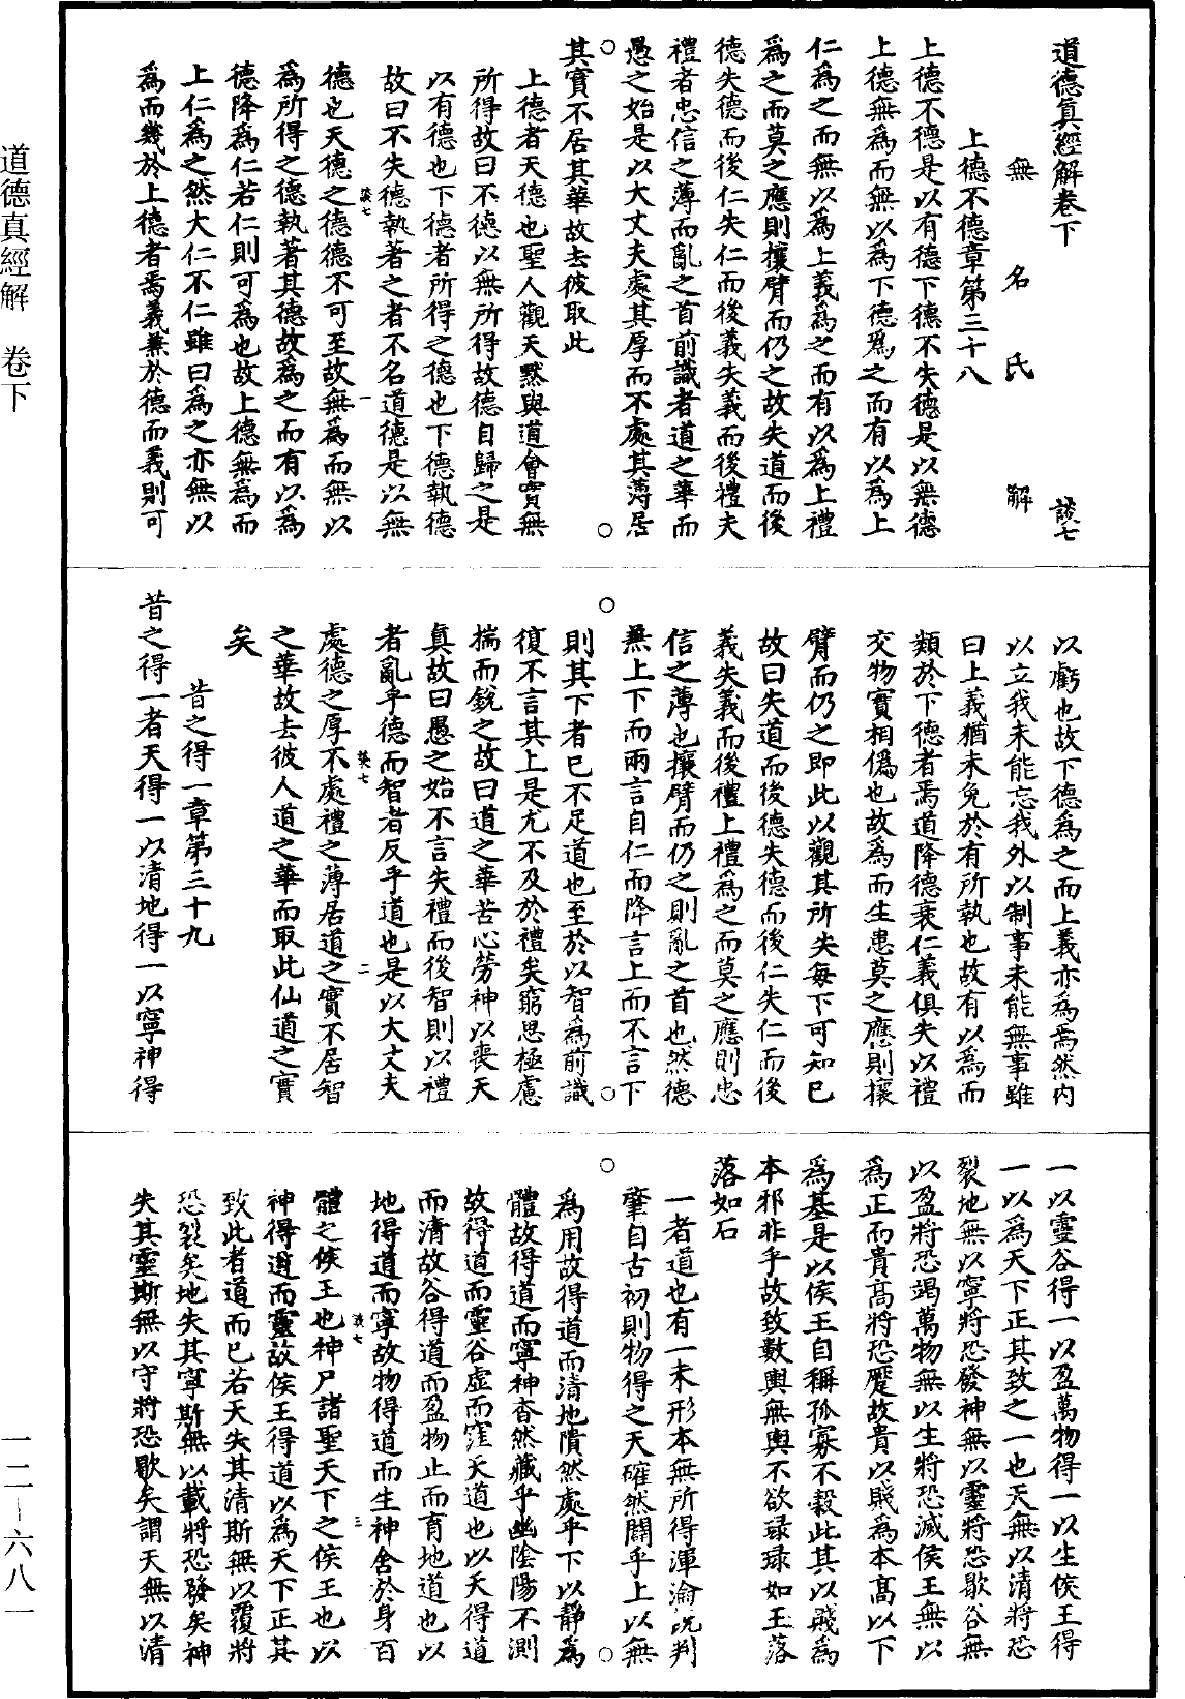 道德真經解卷下
談七
無名氏解
上德不德章第三十八
上德不德是以有德下德不失德是以無德
上德無為而無以為下德為之而有以為上
仁為之而無以為上義為之而有以為上禮
為之而莫之應則攘臂而仍之故失道而後
德失德而後仁失仁而後義失義而後禮夫
禮者忠信之薄而亂之首前識者道之華而
愚之始是以大丈夫處其厚而不處其薄居
其實不居其華故去彼取此
上德者天德也聖人觀天默與道會實無
所得故曰不德以無所得故德自歸之是
以有德也下德者所得之德也下德執德
故曰不失德執著之者不名道德是以無
談七
一
德也天德之德德不可至故無為而無以
為所得之德執著其德故為之而有以為
德降為仁若仁則可為也故上德無為而
上仁為之然大仁不仁雖曰為之亦無以
為而幾於上德者焉義兼於德而義則可
以虧也故下德為之而上義亦為焉然內
以立我未能忘我外以制事未能無事雖
曰上義猶未免於有所執也故有以為而
類於下德者焉道降德衰仁義俱失以禮
交物實相偽也故為而生患莫之應則攘
臂而仍之即此以觀其所失每下可知已
故曰失道而後德失德而後仁失仁而後
義失義而後禮上禮為之而莫之應則忠
信之薄也攘臂而仍之則亂之首也然德
無上下而兩言自仁而降言上而不言下
則其下者已不足道也至於以智為前識
復不言其上是尤不及於禮矣窮思極慮
揣而銳之故曰道之華苦心勞神以喪天
真故曰愚之始不言失禮而後智則以禮
者亂乎德而智者反乎道也是以大丈夫
談七
二
處德之厚不處禮之薄居道之實不居智
之華故去彼人道之華而取此仙道之實
矣
昔之得一章第三十九
昔之得一者天得一以清地得一以寧神得
一以靈谷得一以盈萬物得一以生侯王得
一以為天下正其致之一也天無以清將恐
裂地無以寧將恐發神無以靈將恐歇谷無
以盈將恐竭萬物無以生將恐滅侯王無以
為正而貴高將恐蹷故貴以賤為本高以下
為基是以侯王自稱孤寡不穀此其以賤為
本邪非乎故致數輿無輿不欲琭琭如玉落
落如石
一者道也有一未形本無所得渾淪既判
肇自古初則物得之天確然闢乎上以無
為用故得道而清地隤然處乎下以靜為
體故得道而寧神杳然藏乎幽陰陽不測
故得道而靈谷虛而窪天道也以天得道
而清故谷得道而盈物止而育地道也以
地得道而寧故物得道而生神舍於身百
談七
三
體之侯王也神尸諸聖天下之侯王也以
神得道而靈故侯王得道以為天下正其
致此者道而已若天失其清斯無以覆將
恐裂矣地失其寧斯無以載將恐發矣神
失其靈斯無以守將恐歇矣謂天無以清
道德真經解 卷下
一二－六八一